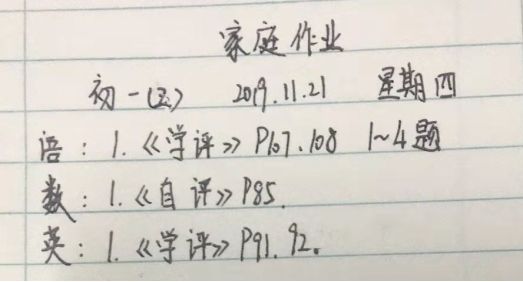 家庭作业
初一(五) 2019.11.21 星期四
语：1.《学评》P107.108 1~4题
数：1.《自评》P85.
英：1.《学评》P91.92.